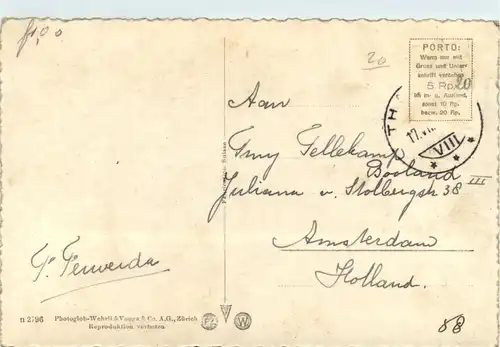 fr,00
20
PORTO:
Wenn nur mit
Gruss und Unter-
schrift versehen
5 Rp. 20
im In- u. Ausland,
sonst 10 Rp.
bezw. 20 Rp.
TH
17.VII
VIII
Aan
Fellekamp
Booland
Juliana v. Stolbergstr 38 III
Amsterdam
Holland.
F. Ferwerda
n 2796 Photoglob-Wehrli & Vouga & Co. A.G., Zürich
Reproduktion verboten
W
88